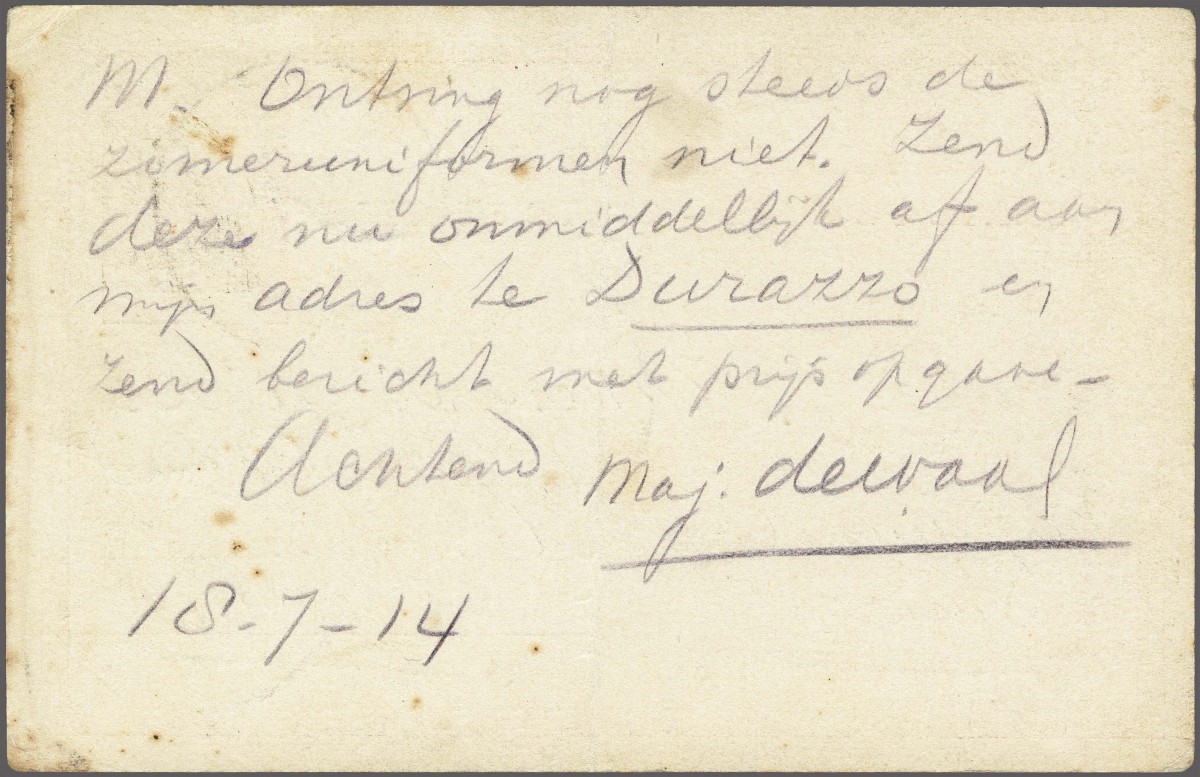 M. Ontving nog steeds de
zomeruniformen niet. Zend
deze nu onmiddellijk af aan
mijn adres te Durazzo en
zend bericht met prijs opgave -
Achtend Maj. de Waal
18-7-14